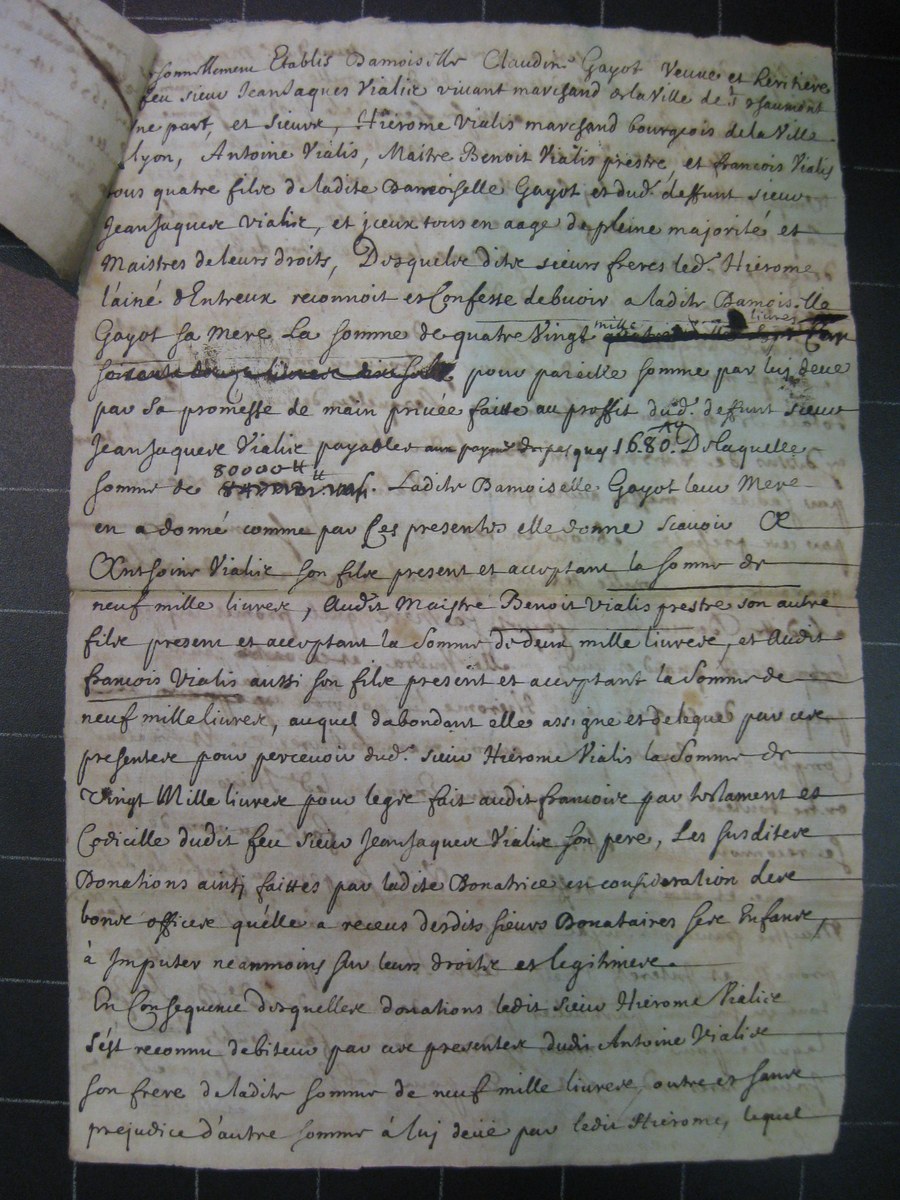 sonnellement Etablis Damoiselle Claudine Gayot Veuve et heritiere
feu sieur Jean Jaques Vialis vivant marchand de la Ville de St Chaumont
ne part, et sieurs, Hierome Vialis marchand bourgeois de la Ville
Lyon, Antoine Vialis, Maitre Benoit Vialis prestre, et francois Vialis
tous quatre fils de ladite Damoiselle Gayot et dud. deffunt sieur
Jean Jaques Vialis, et iceux tous en aage de pleine majorité et
Maistres de leurs droits, Desquels dits sieurs freres led. Hierome
l'ainé d'Entreux reconnoit et Confesse debvoir a ladite Damoiselle
Gayot sa Mere La somme de quatre Vingt mille livres
soixante douze livres dix sols pour pareille somme par luy deue
par sa promesse de main privée faitte au proffit dud. deffunt sieur
Jean Jaques Vialis payables aux payemt de 1680. De laquelle
80000 tt
somme de Ladite Damoiselle Gayot leur Mere
en a donné comme par Ces presentes elle donne scavoir A
Anthoine Vialis son fils present et acceptant la somme de
neuf mille livres, Audit Maistre Benoit Vialis prestre son autre
fils present et acceptant la Somme de deux mille livres, et Audit
francois Vialis aussi son fils present et acceptant la Somme de
neuf mille livres, auquel dabondant elle assigne et delegue par ces
presentes pour percevoir dud. sieur Hierome Vialis la Somme de
Vingt Mille livres pour legs fait audit francois par testament et
Codicille dudit feu sieur Jean Jaques Vialis son pere, Les susdites
Donations ainsy faittes par ladite Donatrice en consideration des
bons offices qu'elle a receus desdits sieurs Donataires ses Enfans,
à Imputer neanmoins sur leurs droits et legitimes.
En Consequence desquelles donations ledit sieur Hierome Vialis
s'est reconnu debiteur par ces presentes dudit Antoine Vialis
son frere de ladite somme de neuf mille livres, outre et sans
prejudice d'autre somme à luy deüe par ledit Hierome, lequel